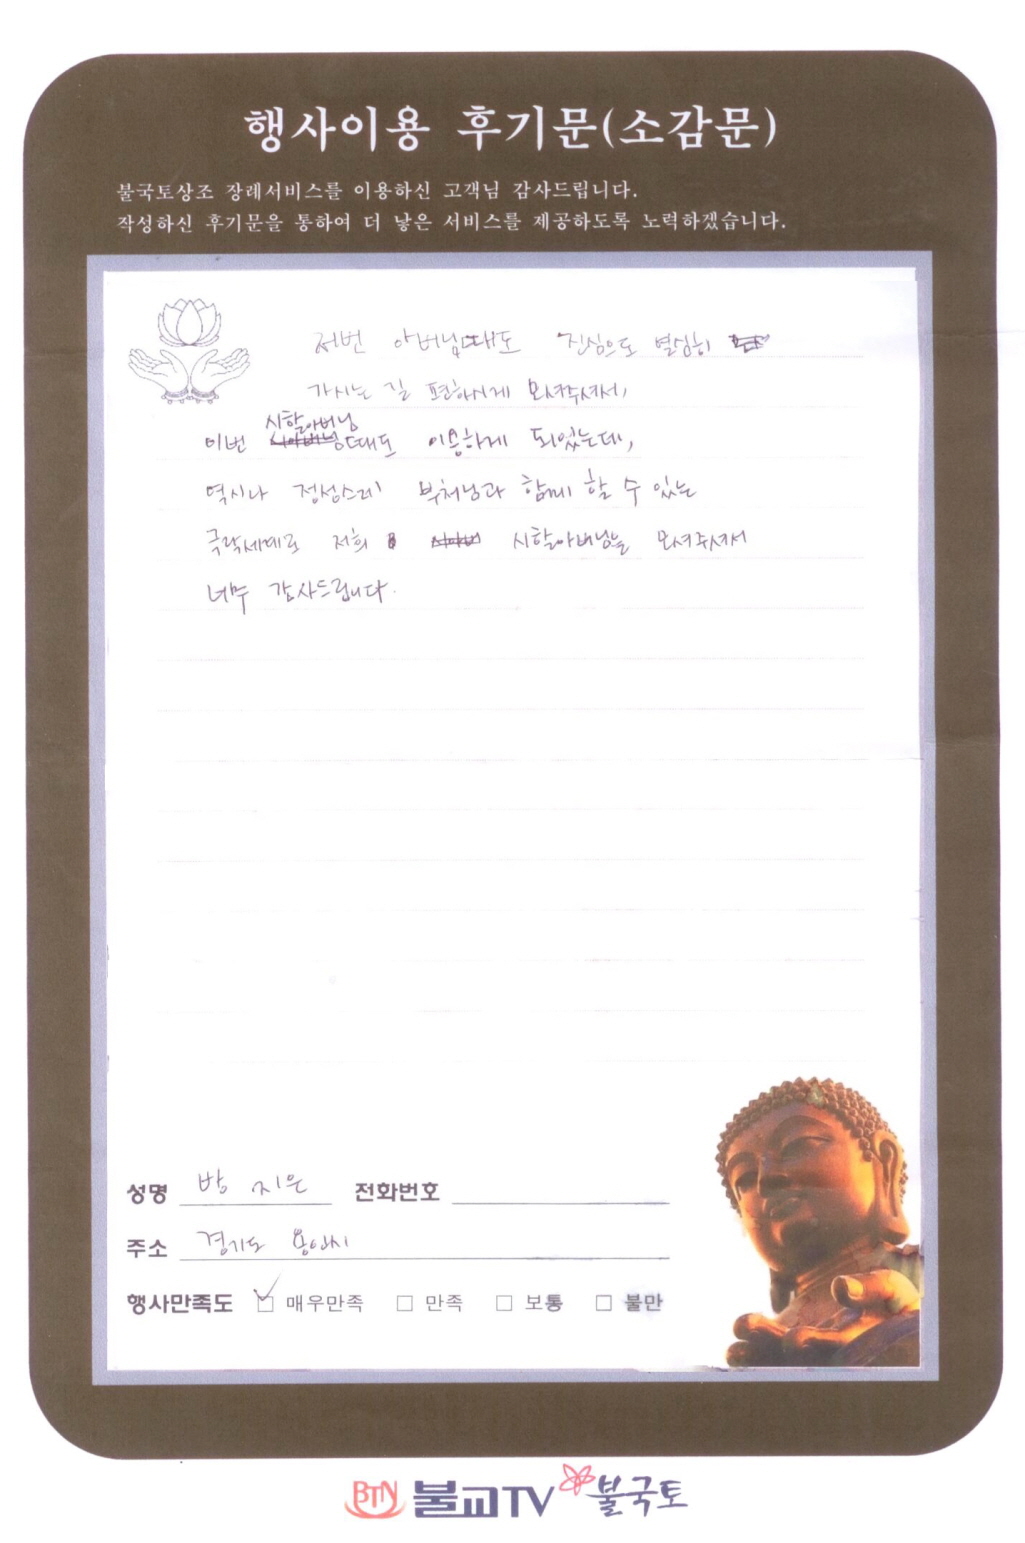 행사이용 후기문(소감문)
불국토상조 장례서비스를 이용하신 고객님 감사드립니다.
작성하신 후기문을 통하여 더 낳은 서비스를 제공하도록 노력하겠습니다.
저번 아버님때도 진심으로 열심히
가시는 길 편하시게 모셔주셔서,
이번 시할아버님때도 이용하게 되었는데,
역시나 정성스레 부처님과 함께 할 수 있는
극락세계로 저희 시할아버님을 모셔주셔서
너무 감사드립니다.
성명 방지은 전화번호
주소 경기도 용인시
행사만족도 ☑ 매우만족 □ 만족 □ 보통 □ 불만
BTN 불교TV 불국토